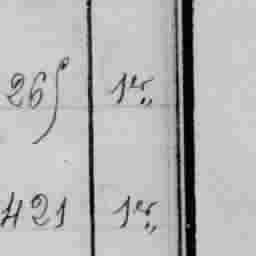 265 1er„
421 1er„